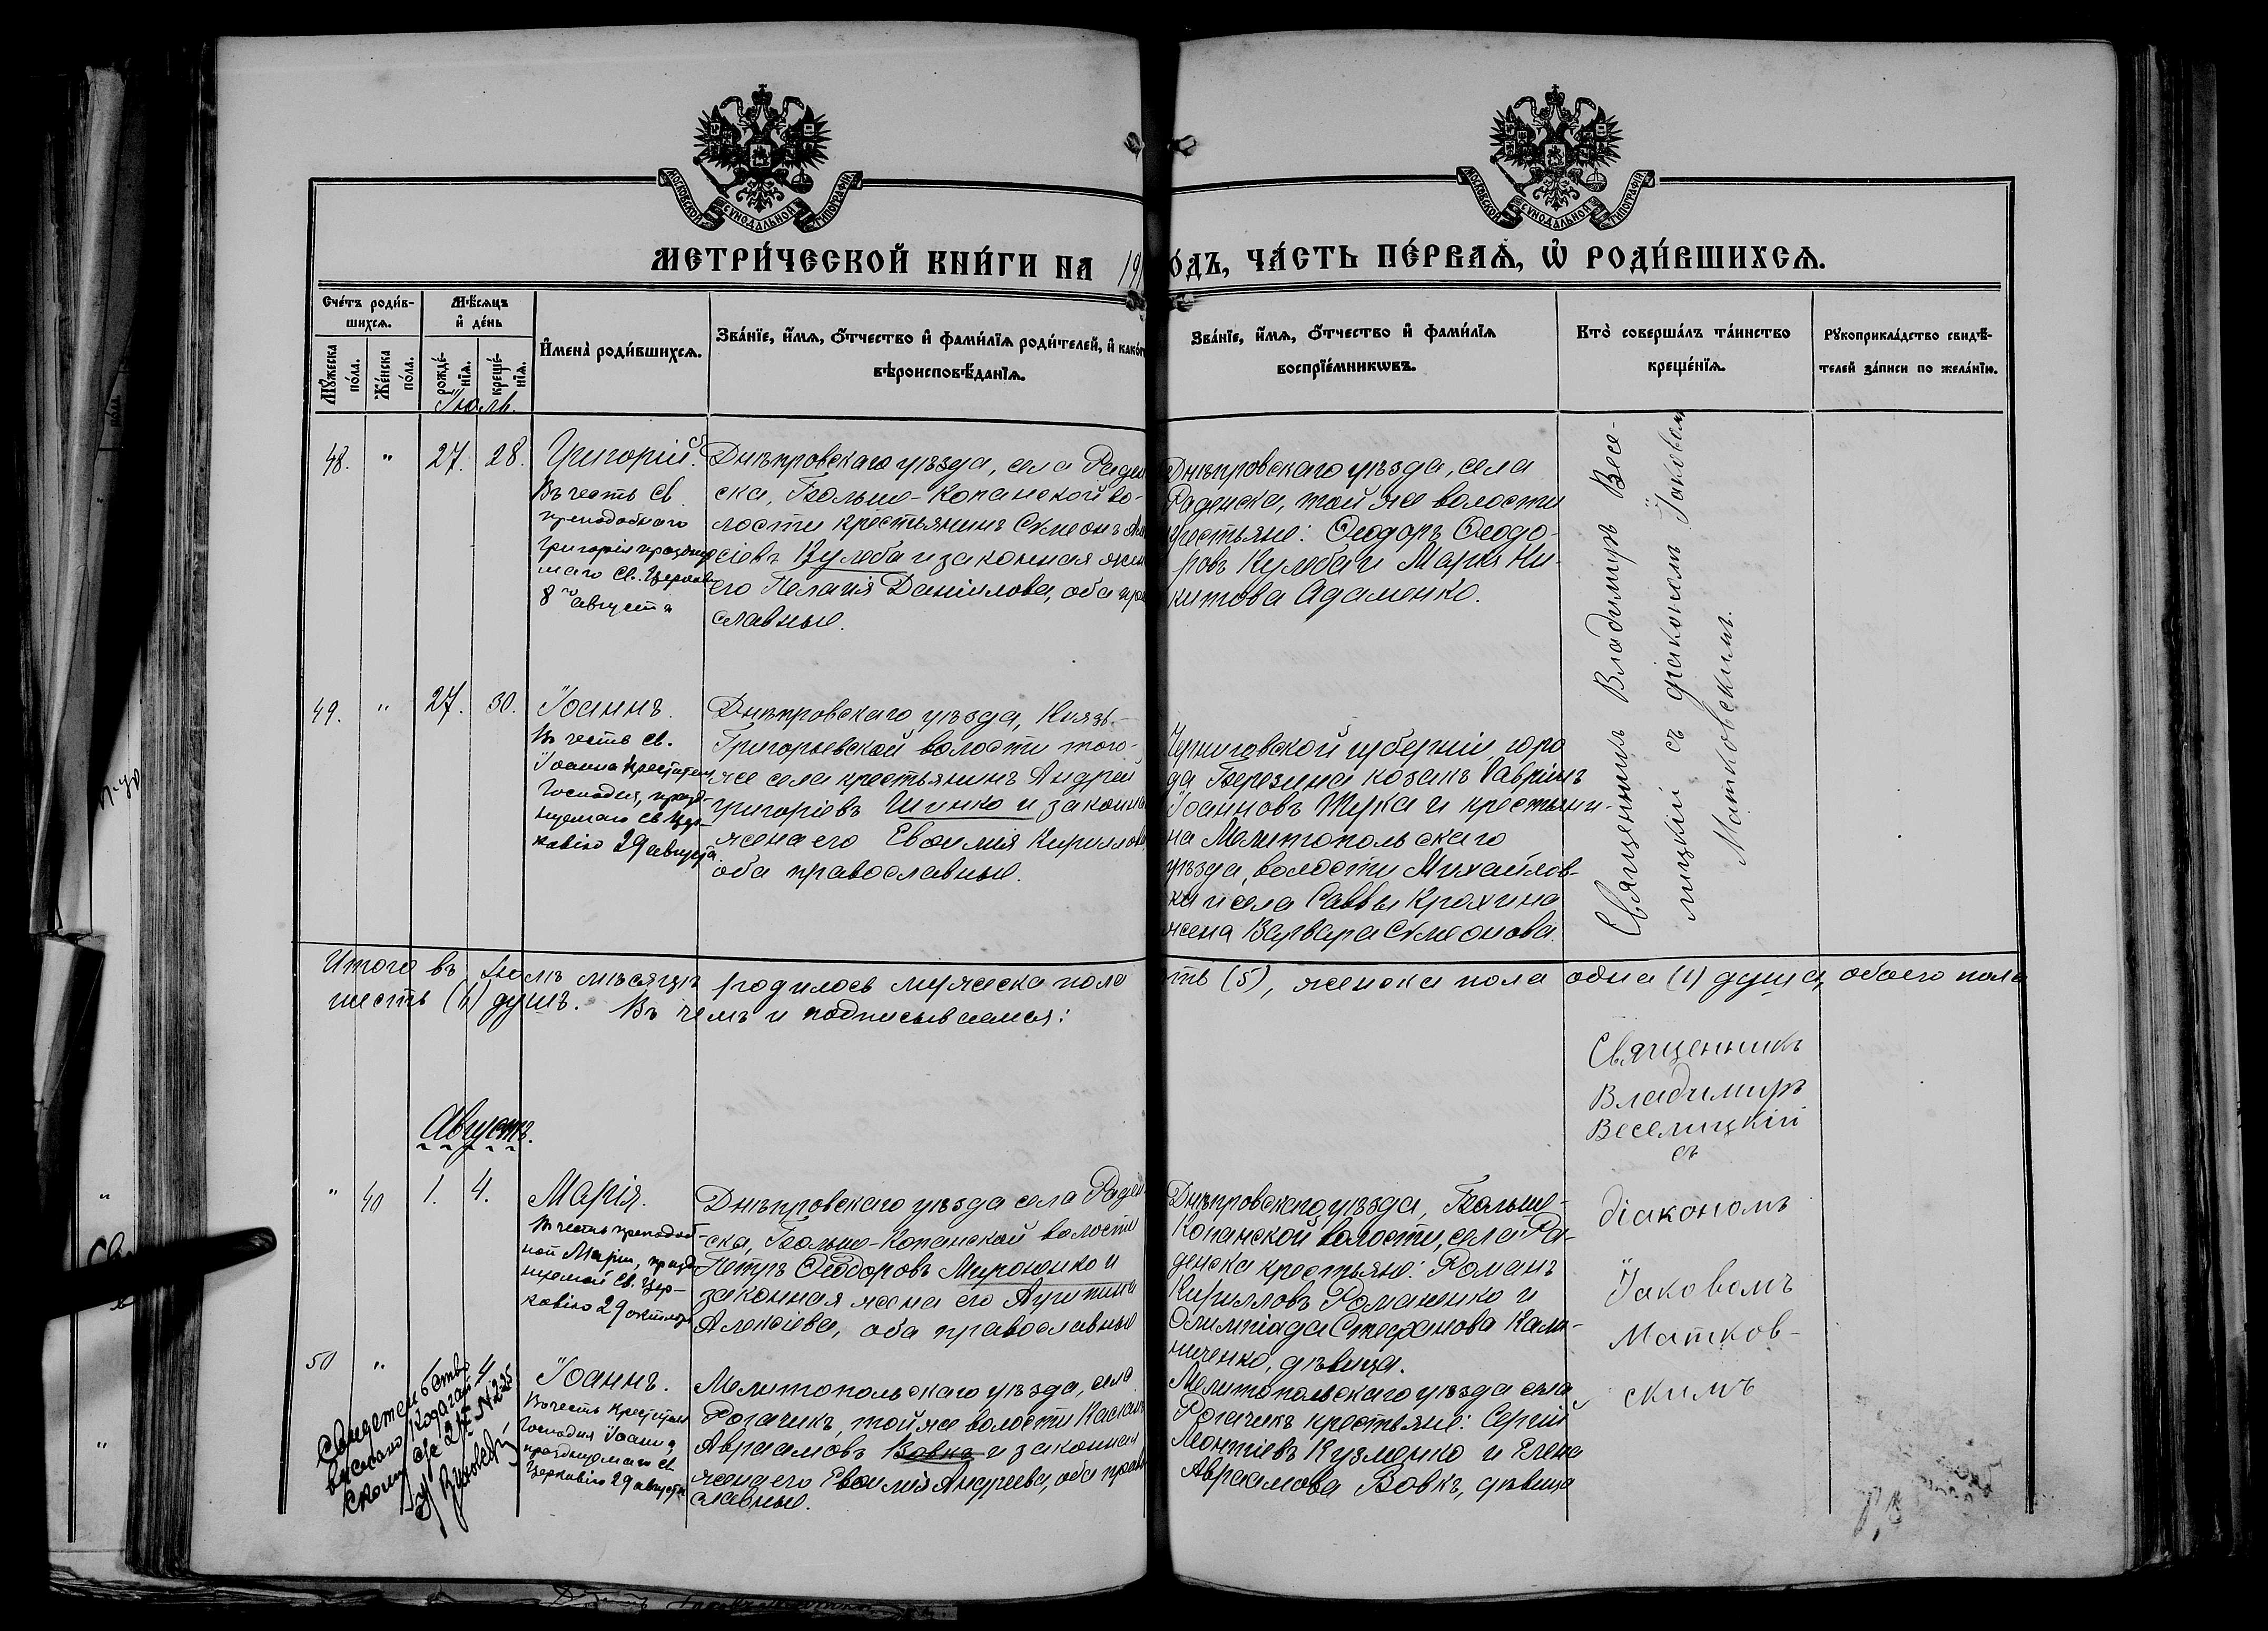 МОСКОВСКОЙ СѴНОДАЛЬНОЙ ТИПОГРАФІИ
МОСКОВСКОЙ СѴНОДАЛЬНОЙ ТИПОГРАФІИ
МЕТРИ́ЧЕСКОЙ КНИ́ГИ НА 191
О́ДЪ, ЧА́СТЬ ПЕ́РВАѦ, Ѡ҆ РОДИ́ВШИХСѦ.
Сче́тъ роди́в-
шихсѧ.
Мꙋ́жеска по́ла.
Же́нска по́ла.
Мѣ́сѧцъ
и҆ де́нь
рожде́-
нїѧ.
креще́-
нїѧ.
И҆мена̀ роди́вшихсѧ.
Зва́нїе, и҆́мѧ, ѻ҆́тчество и҆ фами́лїѧ роди́телей, и҆ како́г
вѣроисповѣ́данїѧ.
Зва́нїе, и҆́мѧ, ѻ҆́тчество и҆ фами́лїѧ
воспрїе́мникѡвъ.
Кто̀ соверша́лъ та́инство
креще́нїѧ.
Рꙋкоприкла́дство свидѣ́-
телей за́писи по жела́нїю.
Іюль.
48. " 27. 28.
Григорій.
Въ честь св.
преподобнаго
Григорія праздну
маго св. Церков
8го августа
Днѣпровскаго уѣзда, села Раден
ска, Больше-Копанской во-
лости крестьянинъ Сѵмеонъ
сіевъ Кулеба и законная жен
его Пелагія Даніилова, оба пра
славные.
Днѣпровскаго уѣзда, села
Раденска, той же волости
крестьяне: Ѳеодоръ Ѳеодо-
ровъ Кулеба и Марія Ни-
китова Адаменко.
Священникъ Владимиръ Весе-
лицкій съ діакономъ Іаковом
Матковскимъ.
49. " 27. 30.
Іоаннъ.
Въ честь св.
Іоанна Крестителя
Господня, празд-
нуемаго св. Цер-
ковію 29 августа.
Днѣпровскаго уѣзда, Князь-
Григорьевской волости того-
же села крестьянинъ Андрей
Григоріевъ Шинко и законна
жена его Евѳимія Кириллова
оба православные.
Черниговской губерніи горо
да Березина козакъ Гавріилъ
Іоанновъ Шука и крестьяни-
на Мелитопольскаго
уѣзда, волости Михайлов-
ки и села Саввы Крохина
жена Варвара Сѵмеонова.
Итого въ Іюлѣ мѣсяцѣ родилось мужеска пола
ть (5), женска пола одна (1) душа, обоего пола
шесть (6) душъ. Въ чемъ и подписываемся:
Священникъ
Владимиръ
Веселицкій
съ
діакономъ
Іаковомъ
Матков-
скимъ
Августъ.
" 40 1. 4.
Марія.
Въ честь преподоб-
ной Маріи, празд-
нуемой св. Цер-
ковію 29 октября
Днѣпровскаго уѣзда села Раден
ска, Больше-Копанской волости
Петръ Ѳеодоровъ Мироненко и
законная жена его Агрипина
Алексіева, оба православные
Днѣпровскаго уѣзда, Больше-
Копанской волости, села Ра-
денска крестьяне: Романъ
Кирилловъ Романенко и
Олимпіада Стефанова Кали-
ниченко, дѣвица.
50 " 4
Іоаннъ.
Въ честь Крестителя
Господня Іоанна,
празднуемаго св.
Церковію 29 августа
Мелитопольскаго уѣзда, села
Рогачикъ, той же волости
Авраамовъ Вовкъ и законная
жена его Евѳимія Андреева, оба право
славные.
Мелитопольскаго уѣзда села
Рогачикъ крестьяне: Сергій
Леонтіевъ Кузменко и Елена
Авраамова Вовкъ, дѣвица